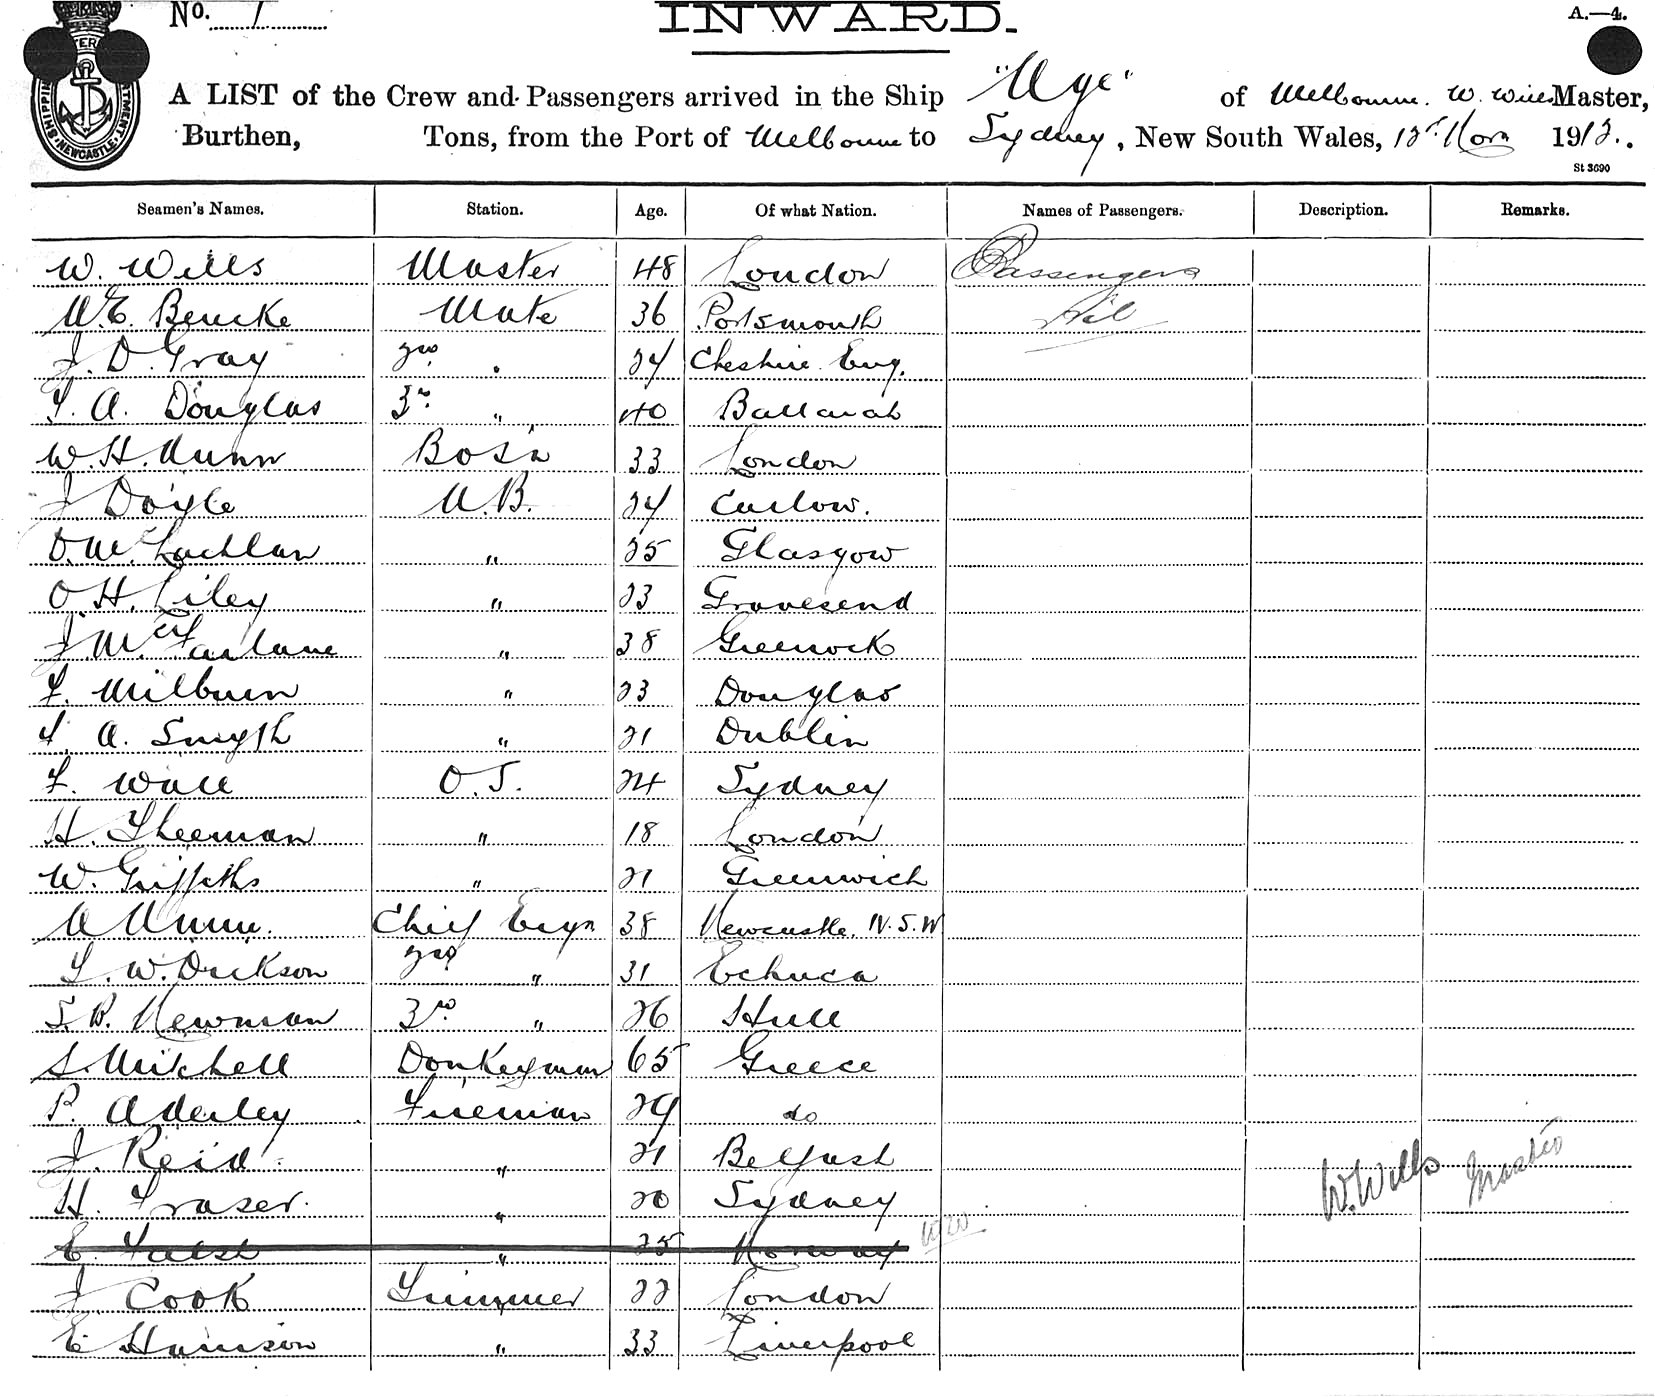 No. 1 INWARD. A.—4.
SHIPPING DEPARTMENT. NEWCASTLE
A LIST of the Crew and Passengers arrived in the Ship "Age" of Melbourne. W. Wills Master,
Burthen, Tons, from the Port of Melbourne to Sydney, New South Wales, 1912.
St 3690
Seamen's Names. Station. Age. Of what Nation. Names of Passengers. Description. Remarks.
W. Wills Master 48 London Passengers
W.E. Mate 36 Portsmouth Nil
J. D. Gray 2nd " 24 Cheshire Eng.
T. A. Douglas 3rd " 40 Ballarat
W. H. Nunn Bos'n 33 London
J Doyle A.B. 24 Carlow.
D. McLachlan " 25 Glasgow
O. H. Liley " 23 Gravesend
J. McFarlane " 38 Greenock
F. Milburn " 23 Douglas
F. A. Smyth " 21 Dublin
F. Wall O.S. 24 Sydney
H. Theeman " 18 London
W. Griffiths " 21 Greenwich
A Chief Engr 38 Newcastle. N.S.W
T. W. Dickson 2nd " 31 Echuca
S. B. Newman 3rd " 26 Hull
S. Mitchell Donkeyman 65 Greece
P. Aderley Fireman 29 do
J. Reid " 21 Belfast
H. Fraser. " 20 Sydney W. Wills Master
E. " 25 Norway WW
J. Cook Trimmer 22 London
E Harrison " 33 Liverpool